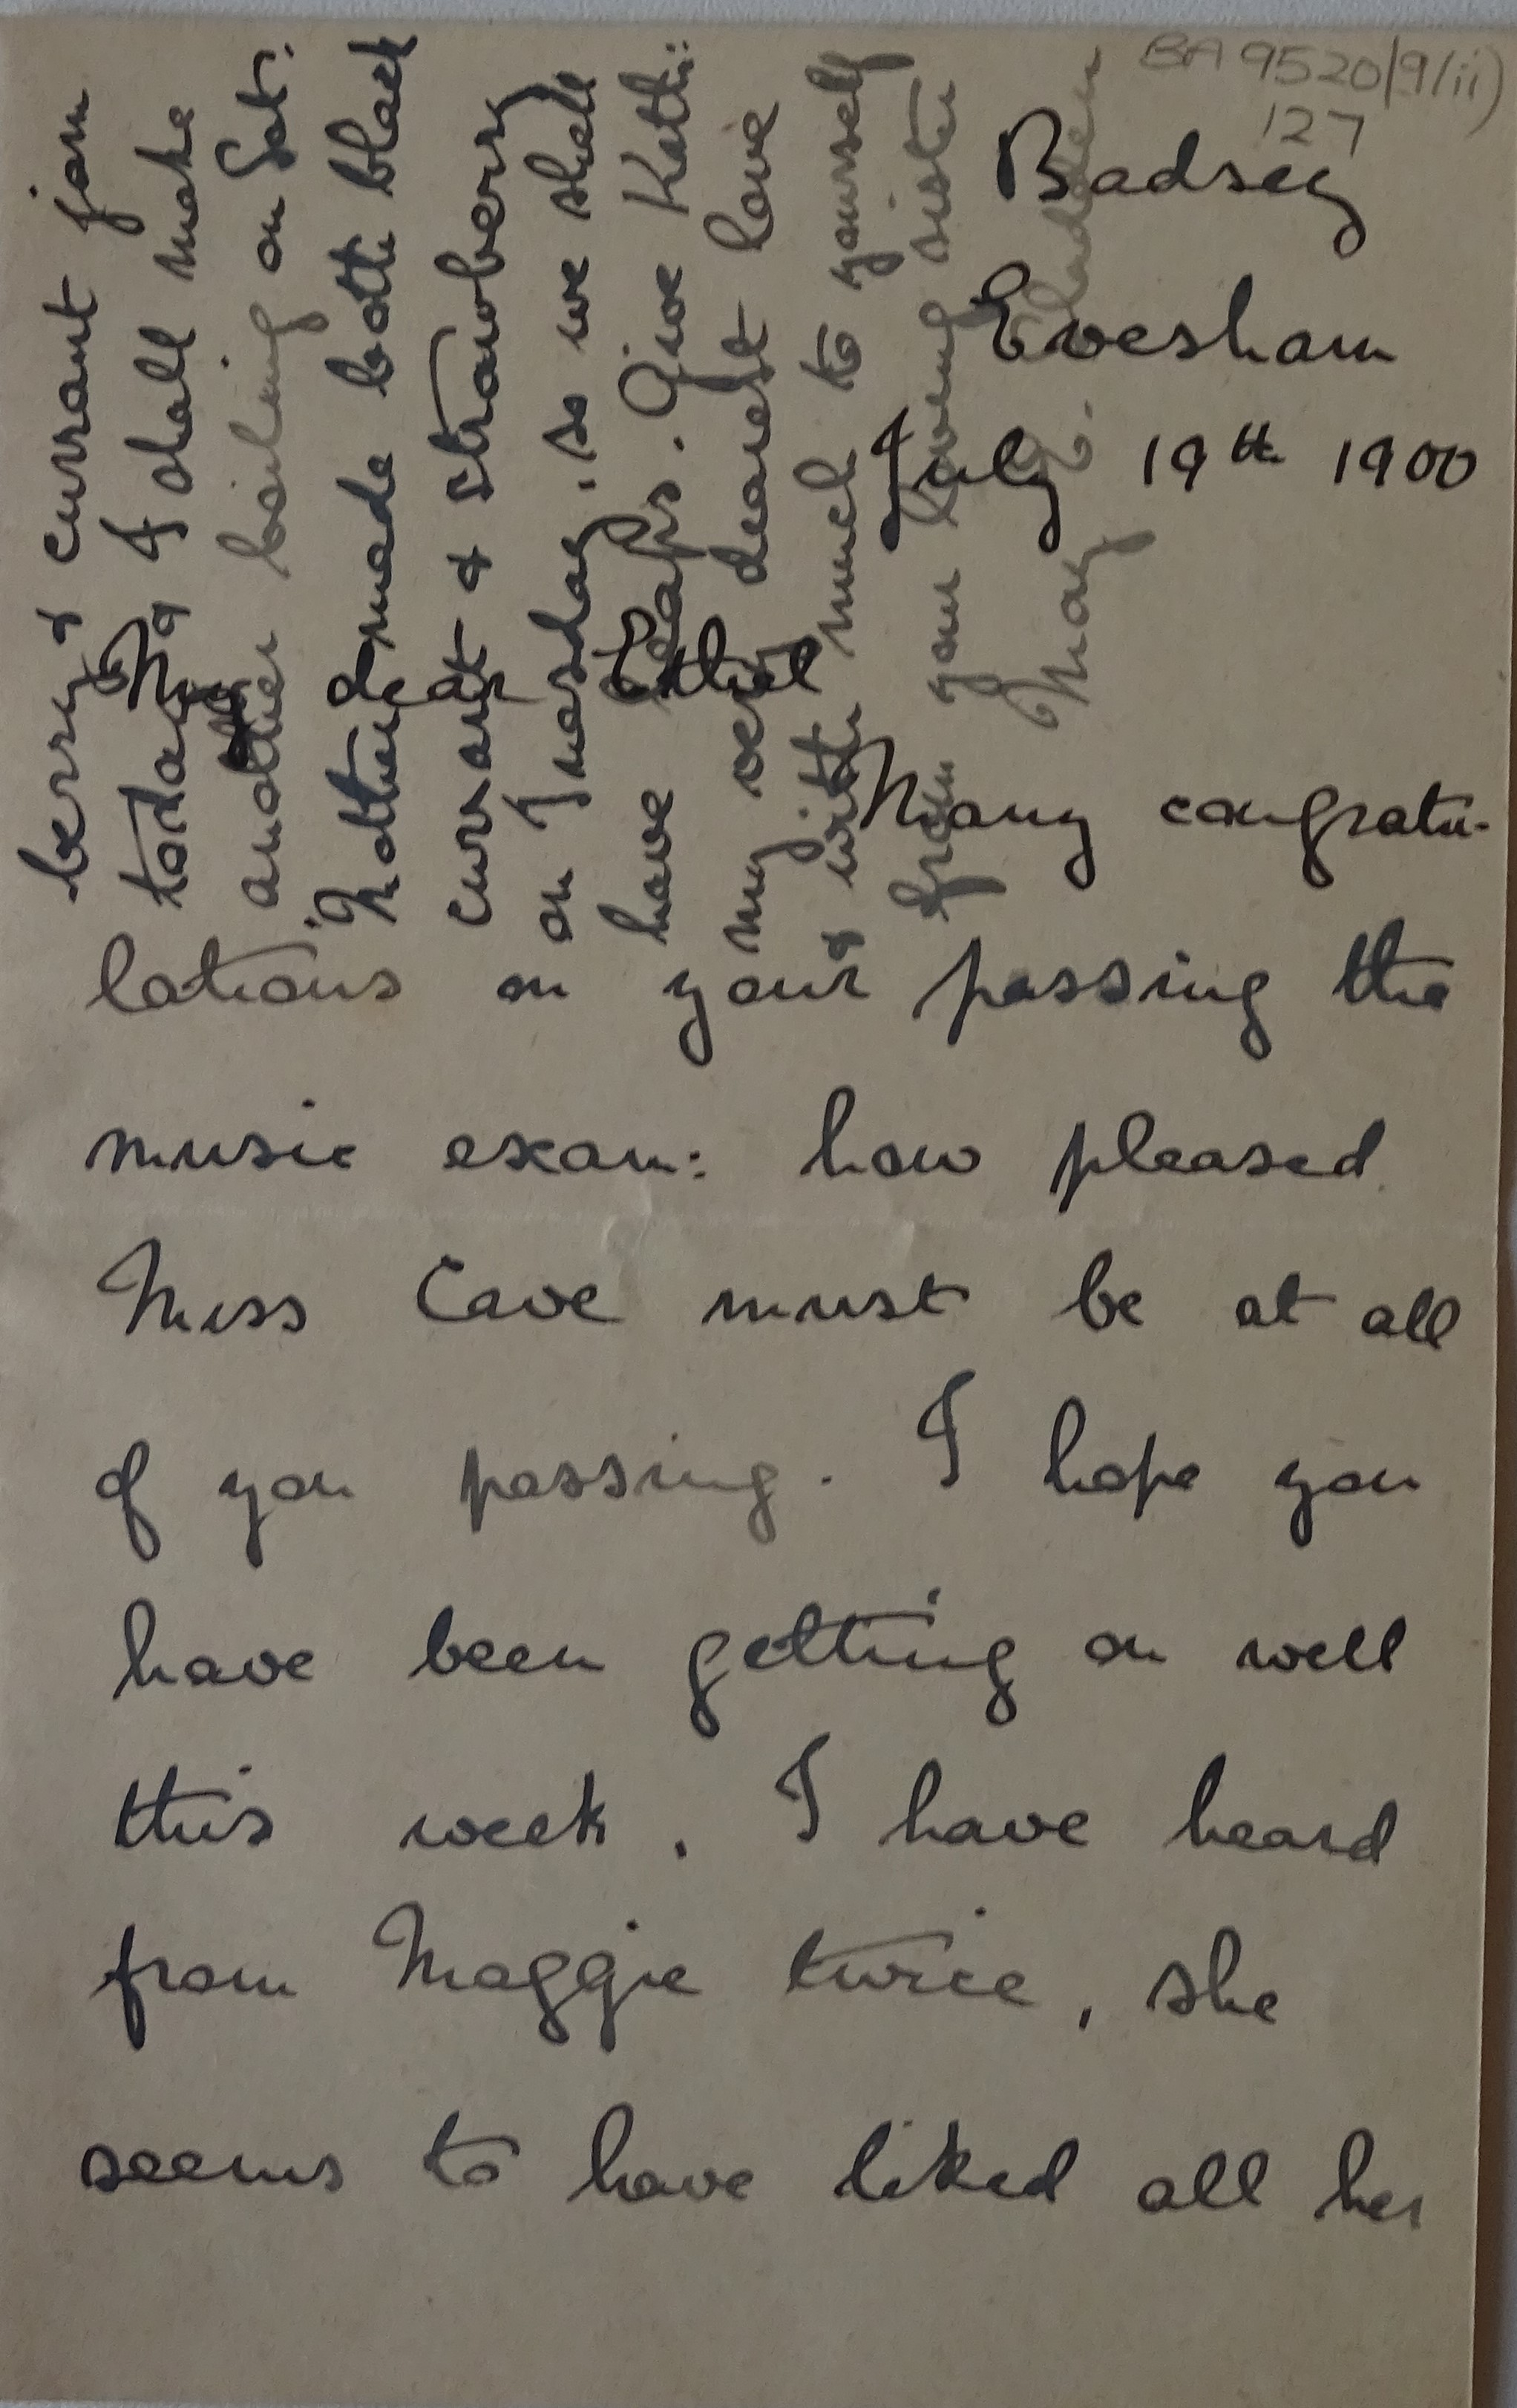 BA 9520/9/ii)
127
Badsey
Evesham
July 19th 1900
My dear Ethel
Many congratu-
lations on your passing the
music exam: how pleased
Miss Cave must be at all
of you passing. I hope you
have been getting on well
this week. I have heard
from Maggie twice, she
seems to have liked all her
berry & currant jam
today & I shall make
another boiling on Sat:
Mother made both black
currant & strawberry
on Tuesday. so we shall
have heaps. Give Kath:
my very dearest love
& with much to yourself
from your loving sister
May E. Sladden